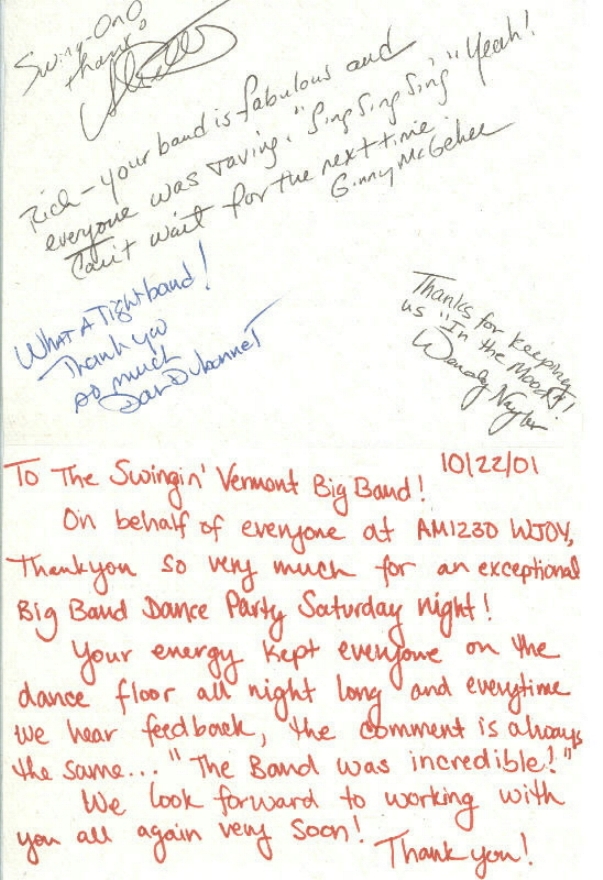 Swing-On
Thanks
Rich - your band is fabulous and
everyone was raving. "Sing Sing Sing" Yeah!
Can't wait for the next time
Ginny McGehee
What A Tight band!
Thank you
so much
Dan Dubonnet
Thanks for keeping
us "In the Mood"!
Wendy Naylor
10/22/01
To The Swingin' Vermont Big Band!
On behalf of everyone at AM1230 WJOY,
Thankyou so very much for an exceptional
Big Band Dance Party Saturday night!
Your energy kept everyone on the
dance floor all night long and everytime
we hear feedback, the comment is always
the same... "The Band was incredible!"
We look forward to working with
you all again very soon!
Thank you!